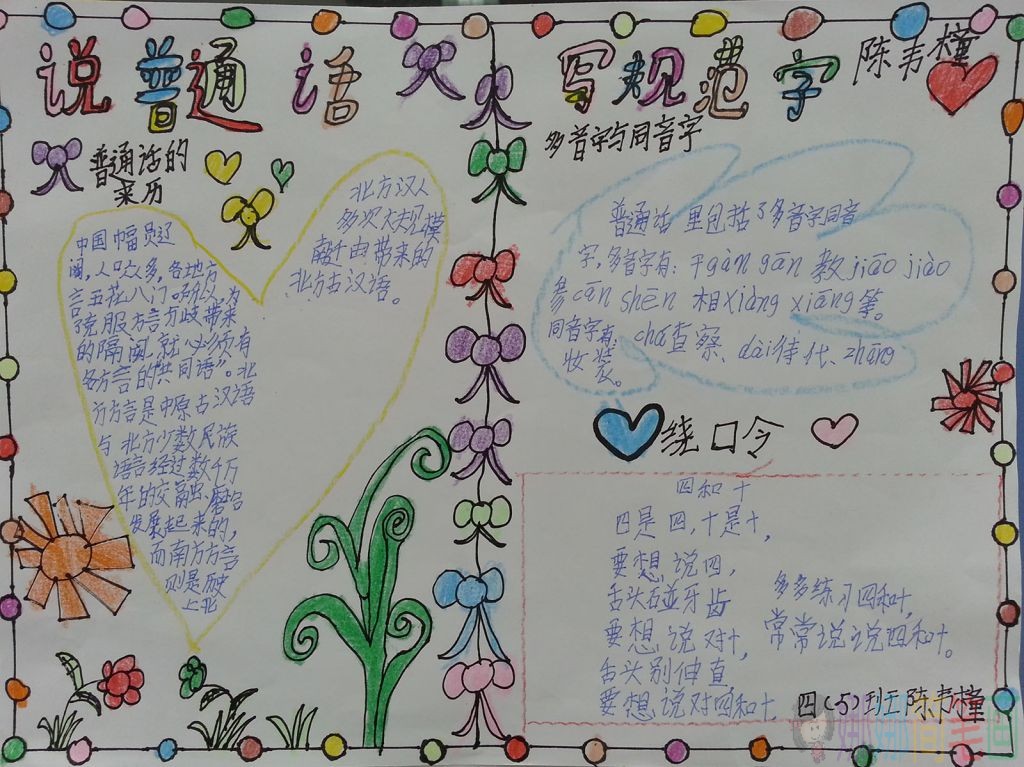 说普通语
写规范字
陈韦橦
普通话的
来历
中国幅员辽
阔,人口众多,各地方
言五花八门。所以,为
了克服方言分歧带来
的隔阂,就必须有
各方言的"共同语"。北
方方言是中原古汉语
与北方少数民族
语言经过数千万
年的交融、磨合
发展起来的,
而南方方言
则是历史
上北
北方汉人
多次大规模
南迁由带来的
北方古汉语。
多音字与同音字
普通话里包括了多音字同音
字,多音字有:干gàn gān 教jiāo jiào
参cān shēn 相xiàng xiāng等。
同音字有:chá查察、dài待代、zhāng
妆装。
绕口令
四和十
四是四,十是十,
要想说四,
舌头碰牙齿
要想说对十,
舌头别伸直
要想说对四和十,
多多练习四和十,
常常说说四和十。
四(5)班陈韦橦